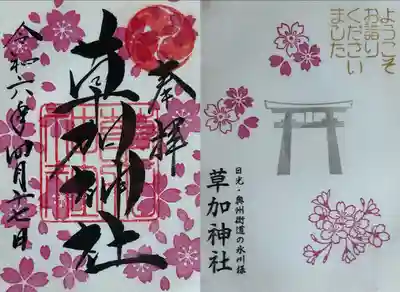 ようこそ
お詣り
ください
ました
日光・奥州街道の氷川様
草加神社
奉拝
草加神社
令和六年四月十七日